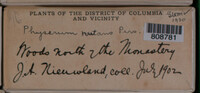 PLANTS OF THE DISTRICT OF COLUMBIA
AND VICINITY
808781
Physarum nutans Pers.
Woods north of the Monastery
J.A. Nieuwland, coll. July 1902